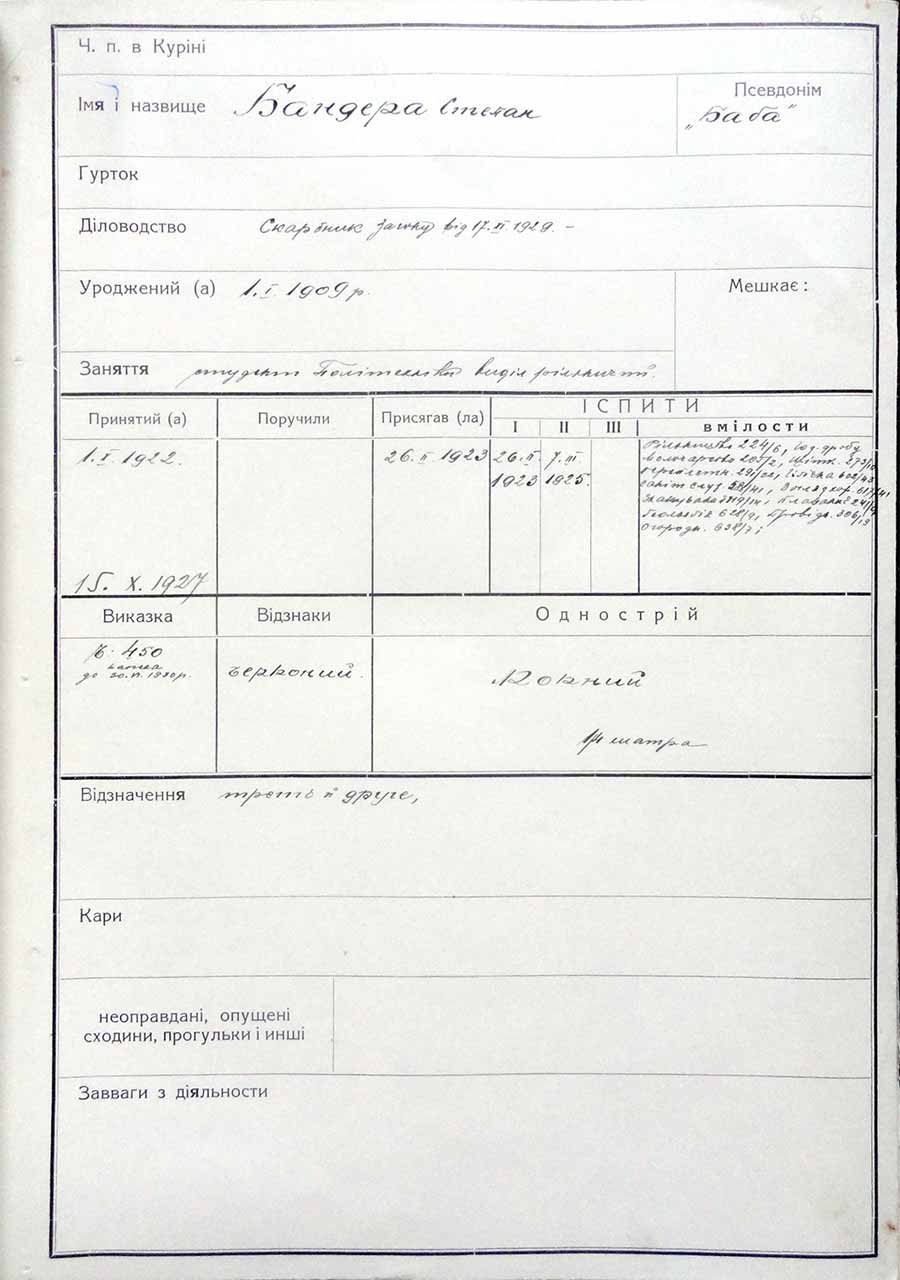 Ч. п. в Куріні
Імя і назвище Бандера Степан
Псевдонім
„Баба"
Гурток
Діловодство Скарбник від 17. XI. 1929. –
Уроджений (а) 1. I. 1909 р.
Мешкає:
Заняття студент Політехніки виділ рільничий.
Принятий (а) Поручили Присягав (ла) ІСПИТИ
I II III вмілости
1. X. 1922. 26. II. 1923 26. II. 1923 7. III. 1925.
Рільництво 224/6,
Молочарство 205/2,
29/22,
58/41,
Плавання
Геольогія 628/9, Провідн. 306/13
Огородн. 638/7;
15. X. 1927
Виказка Відзнаки Однострій
Ч. 450
до 30. VI. 1930 р.
Червоний.
Повний
шатра
Відзначення третє й друге,
Кари
неоправдані, опущені
сходини, прогульки і инші
Завваги з діяльности